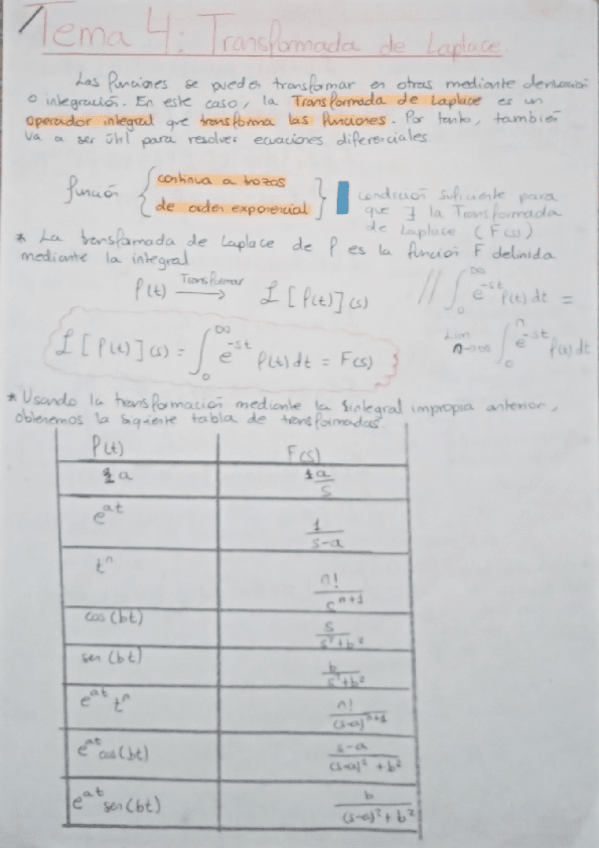 Tema 4: Transformada de Laplace
Las funciones se pueden transformar en otras mediante derivación
o integración. En este caso, la Transformada de Laplace es un
operador integral que transforma las funciones. Por tanto, también
va a ser útil para resolver ecuaciones diferenciales.
función { continua a trozos
de orden exponencial }
condición suficiente para
que ∃ la Transformada
de Laplace (F(s))
* La transformada de Laplace de f es la función F definida
mediante la integral
f(t) Transformar → ℒ[f(t)](s)
// ∫₀^∞ e^{-st} f(t) dt =
lim n→∞ ∫₀^n e^{-st} f(t) dt
ℒ[f(t)](s) = ∫₀^∞ e^{-st} f(t) dt = F(s)
* Usando la transformación mediante la integral impropia anterior,
obtenemos la siguiente tabla de transformadas.
f(t) F(s)
a a/s
e^{at} 1/(s-a)
t^n n!/s^{n+1}
cos(bt) s/(s²+b²)
sen(bt) b/(s²+b²)
e^{at} t^n n!/(s-a)^{n+1}
e^{at} cos(bt) (s-a)/((s-a)²+b²)
e^{at} sen(bt) b/((s-a)²+b²)